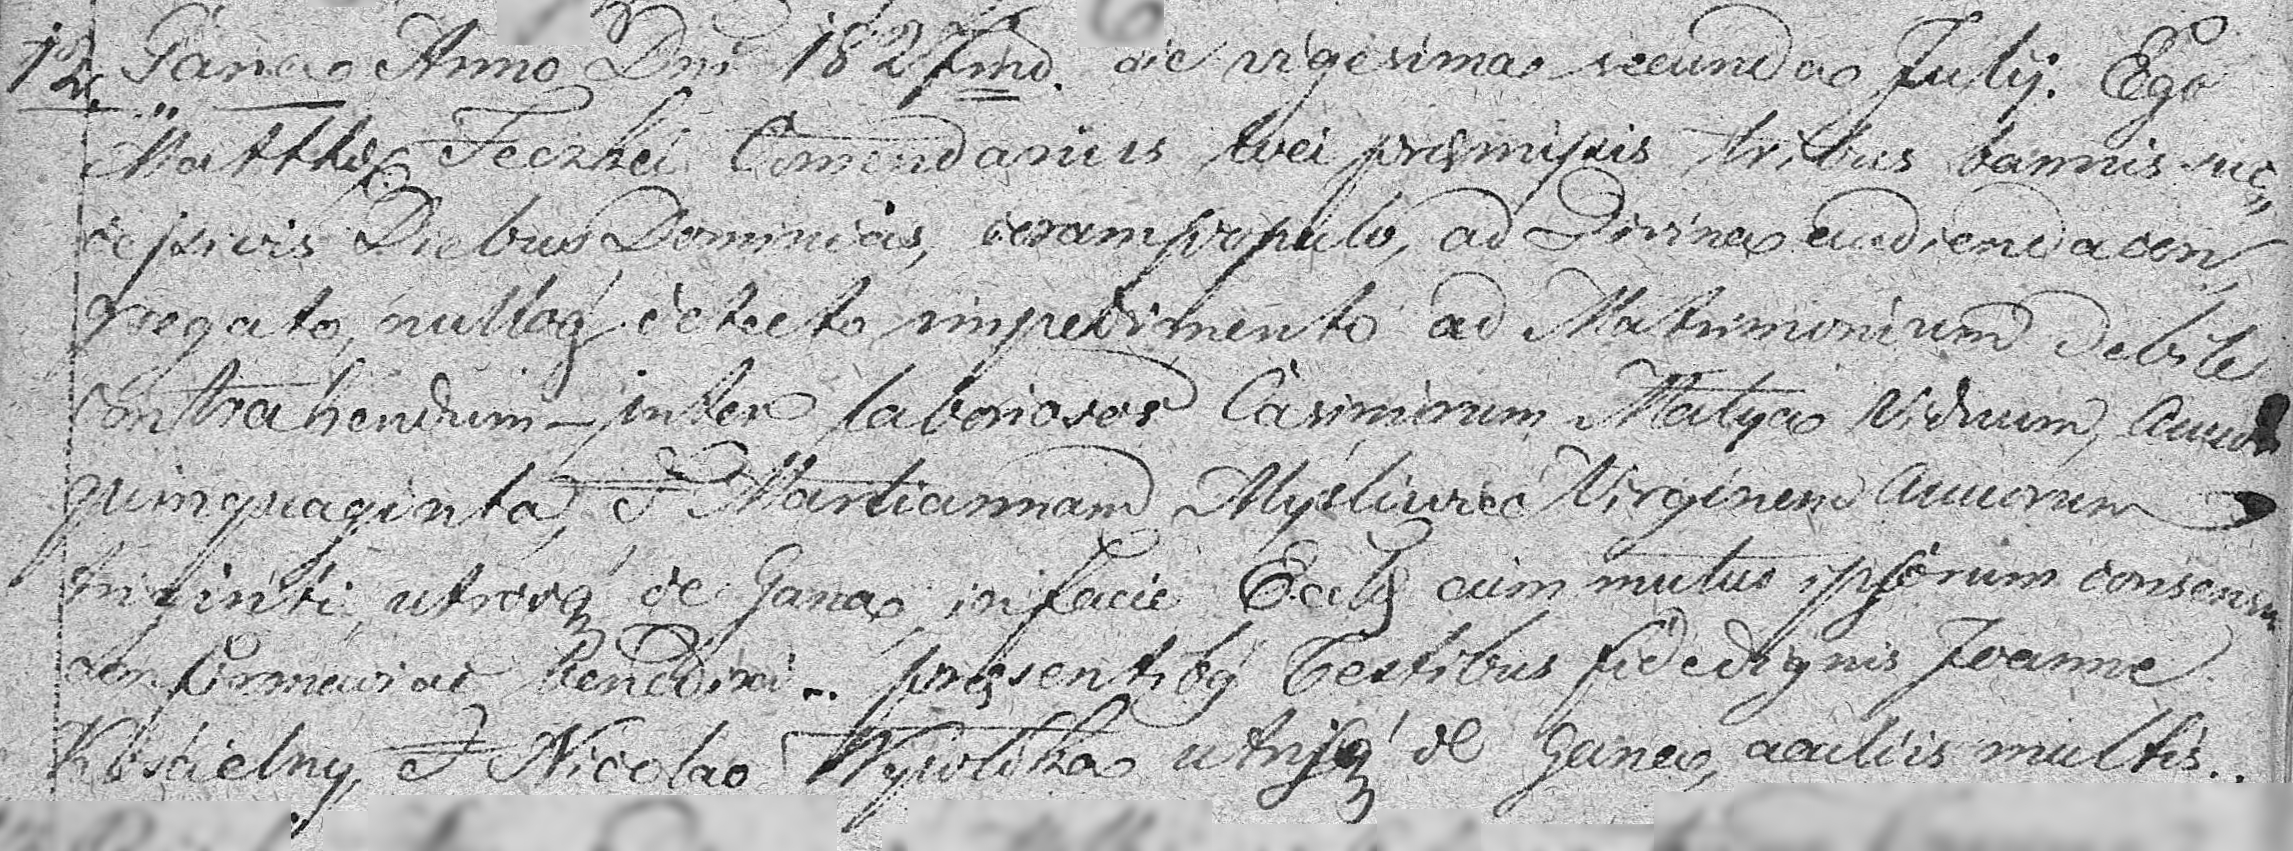 12. Gana Anno Dni 1827mo. die vigesima secunda Julij. Ego
Matthęs Feczkei Comendarius loci pręmissis tribus bannis suc„
cessivis Diebus Dominicis, coram populo, ad Divina audienda con„
gregato, nulloq́ detecto impedimento ad Matrimonium debite
contrahendum – inter laboriosos Casimirum Matyja Viduum, annor
quinquaginta, & Martiannam Mysliwiec Virginem annorum
triginti, utrosq́ de Gana, in facie Eclę cum mutuo ipsorum consensu
confirmavi ac benedixi .. pręsentibq́ Testibus fidedignis Joanne
Kościelny, & Nicolao utrisq́ de Gana, acaliis multis..